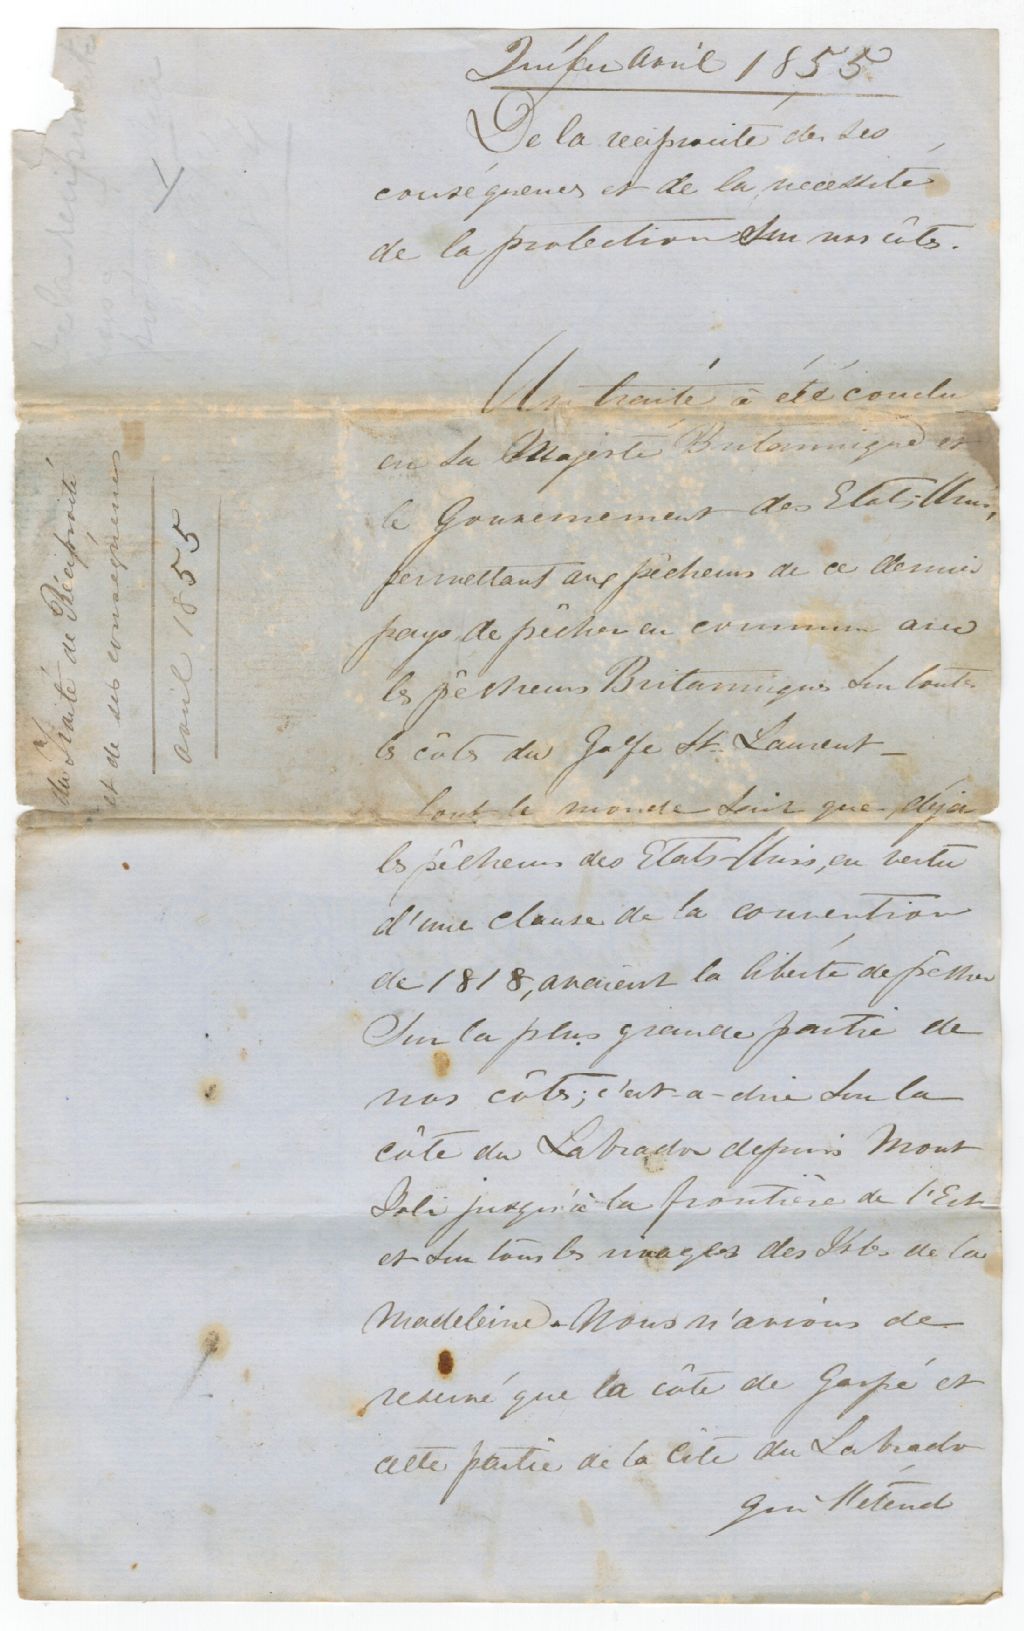 Québec Avril 1855
De la reciprocité de ses
conséquences et de la nécessité
de la protection sur nos côtes.
Un traité à été conclu
en Sa Majesté Britannique et
le Gouvernement des Etats-Unis,
permettant aux pêcheurs de ce dernier
pays de pêcher en commun avec
les pêcheurs Britanniques sur toutes
les côtes du Golfe St. Laurent _
tout le monde sait que déja
les pêcheurs des Etats-Unis, en vertu
d'une clause de la convention
de 1818, avaient la liberté de pêcher
Sur la plus grande partie de
nos côtes; c'est-a-dire sur la
côte du Labrador depuis Mont
Joli jusqu'à la frontière de l'Est
et sur tous les rivages des Isles de la
Madeleine. Nous n'avions de
reservé que la côte de Gaspé et
cette partie de la Côte du Labrador
qui s'étend
du Traité de Réciprocité
et de ses conséquences
avril 1855